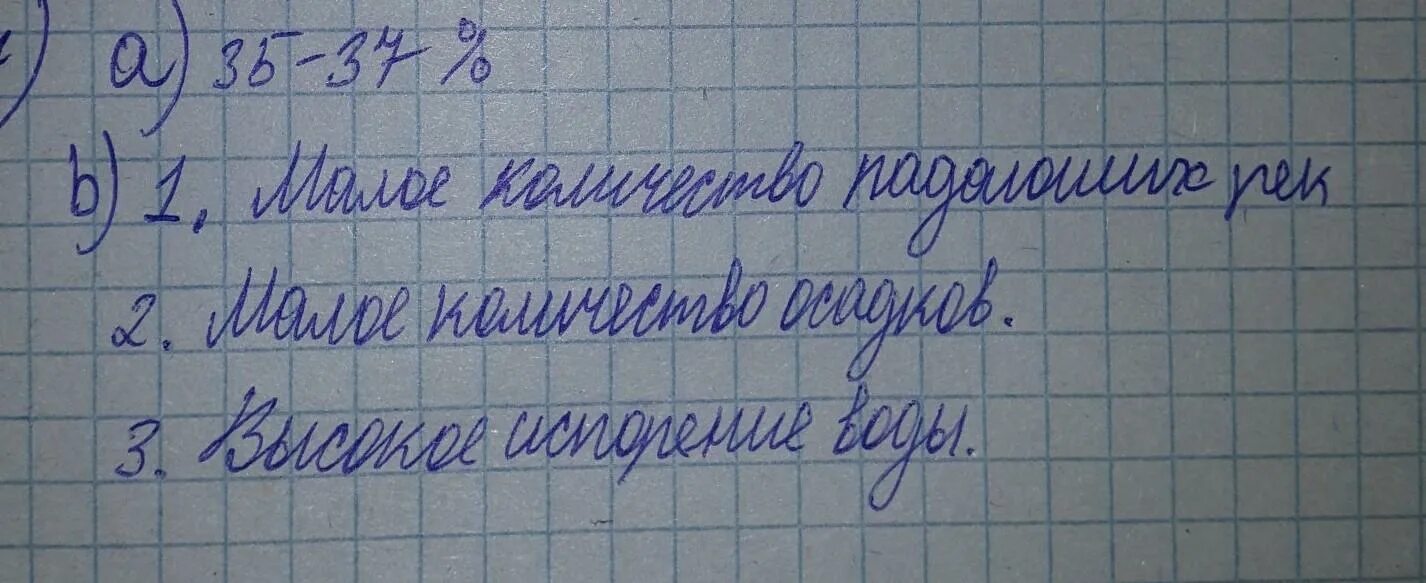 ) a) 35-37 %
b) 1. Малое количество падающих рек
2. Малое количество осадков.
3. Высокое испорение воды.